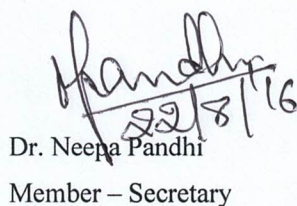 NPandhi
22/8/16
Dr. Neepa Pandhi
Member – Secretary